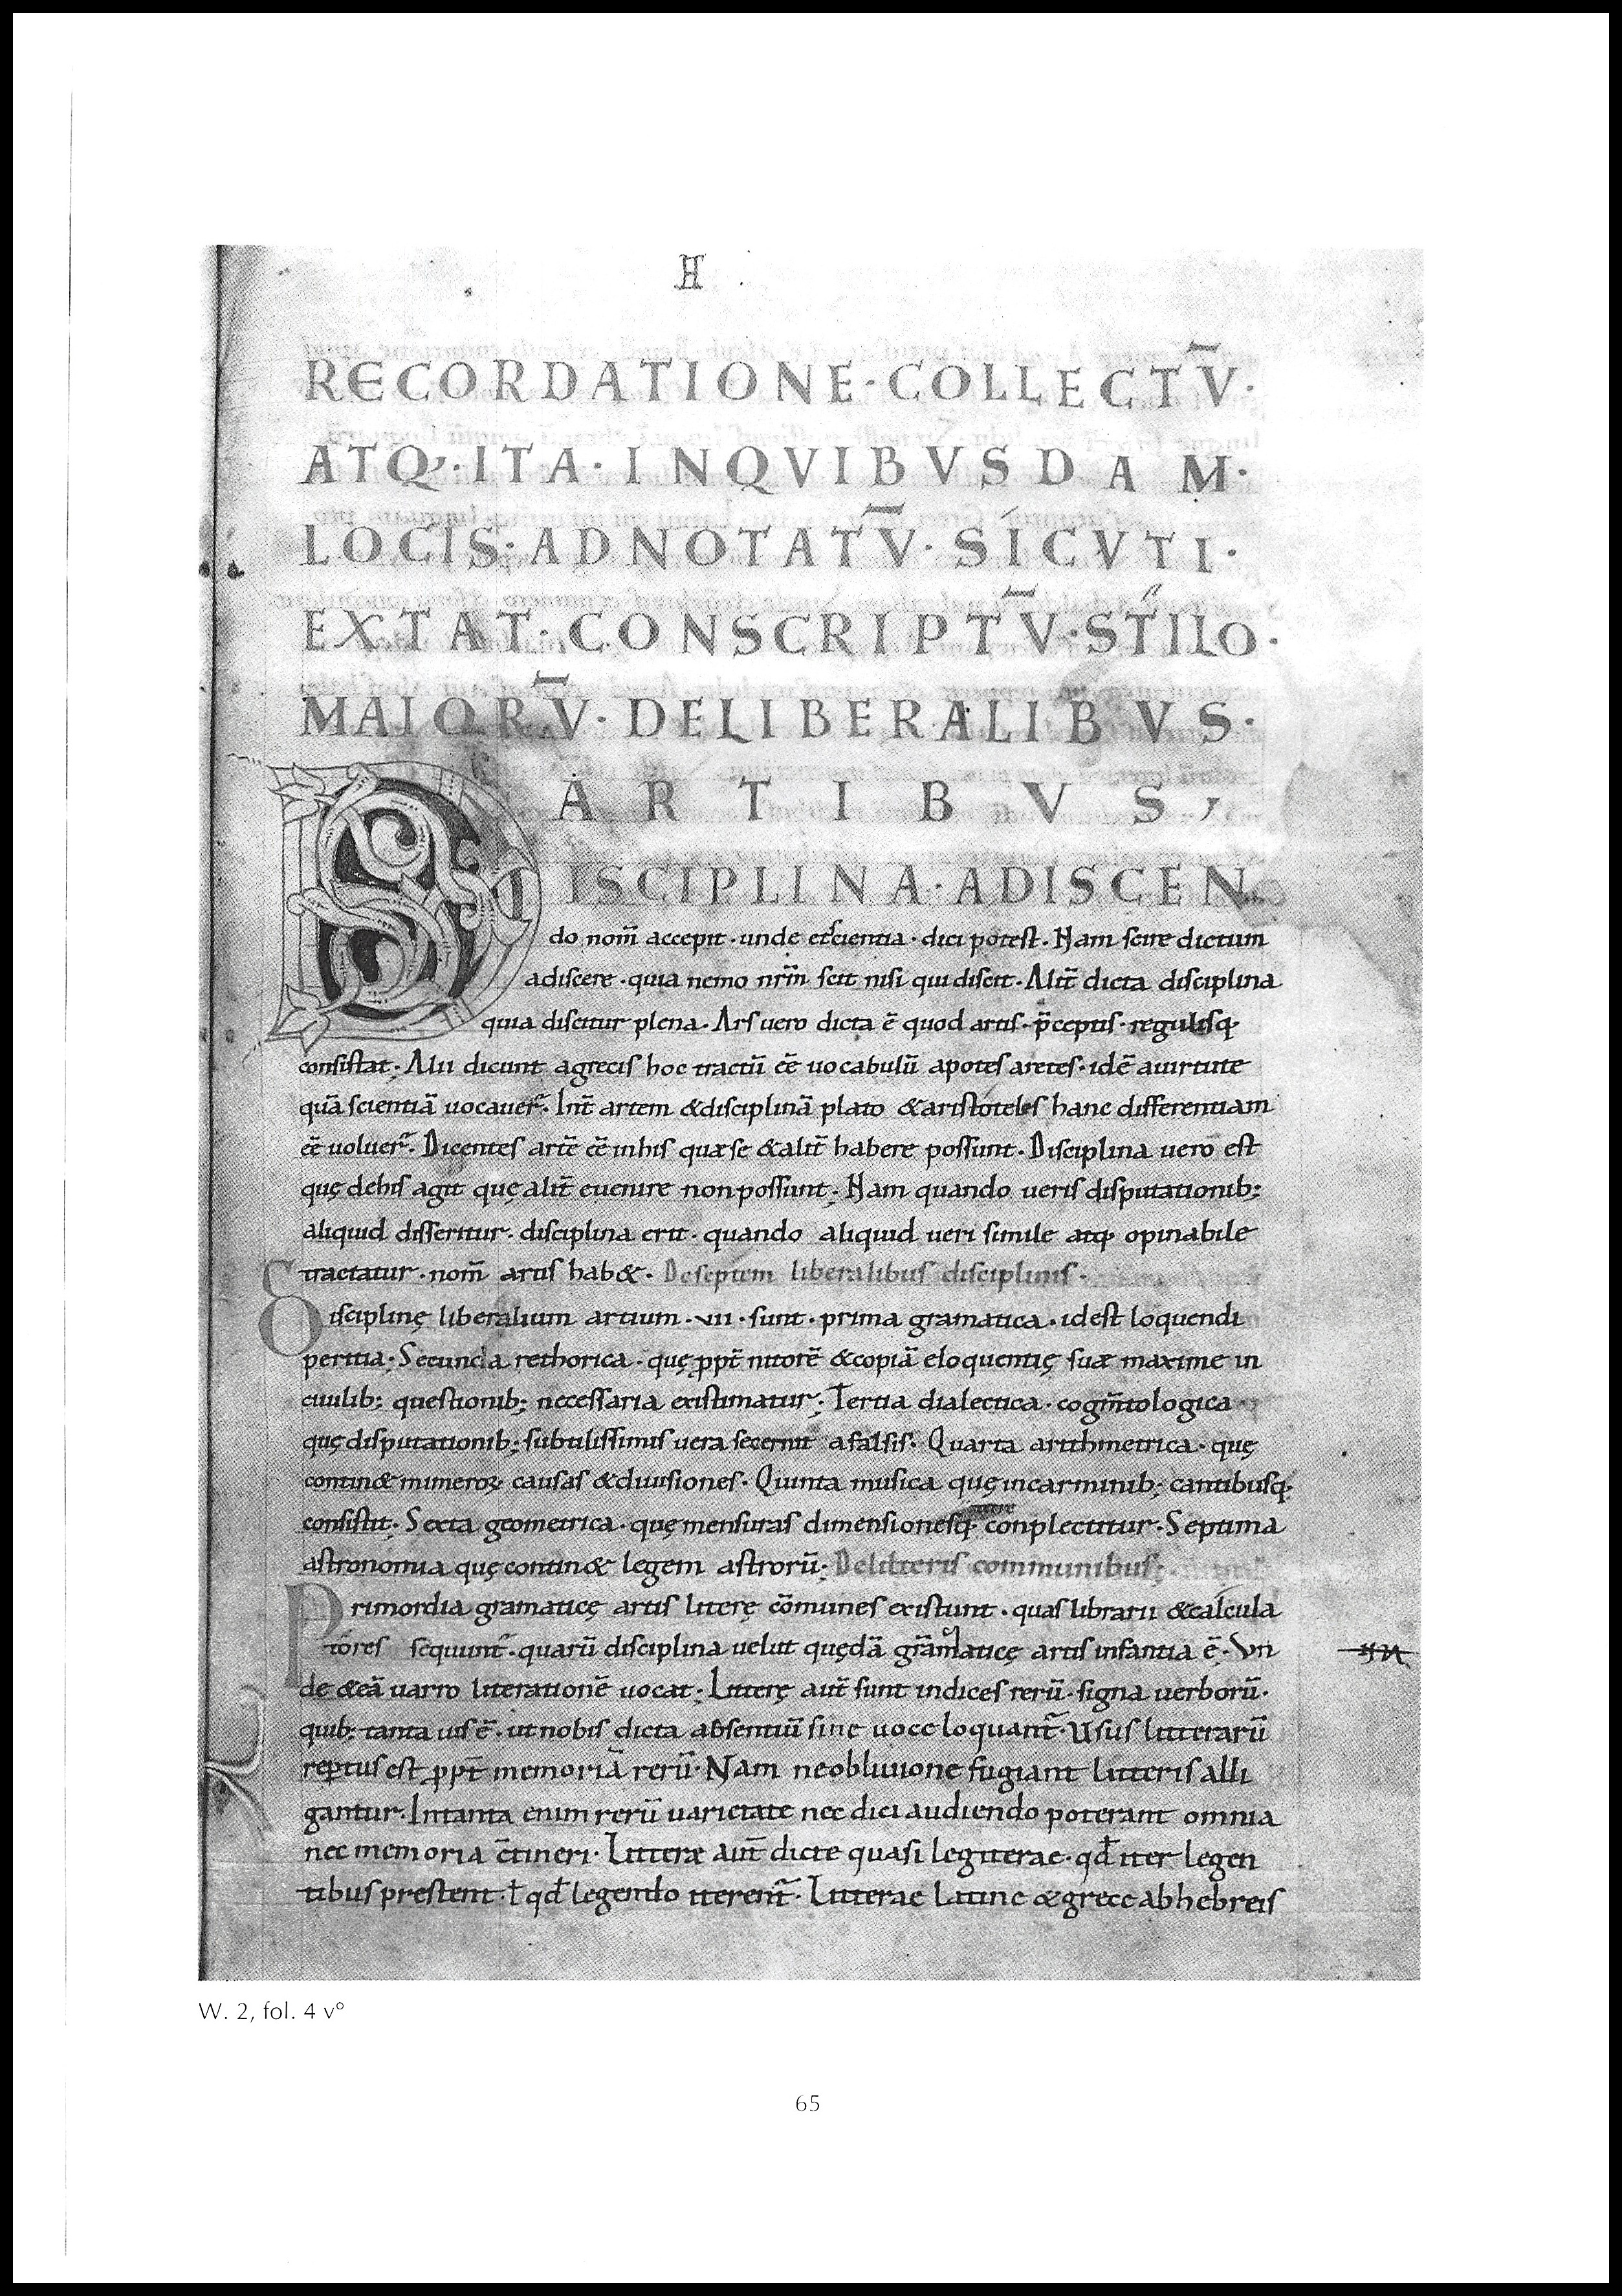 H
RECORDATIONE·COLLECTV̅·
ATQ;·ITA·INQVIBVSDAM·
LOCIS·ADNOTATV̅·SÍCVTI·
EXTAT·CONSCRIPTV̅·STILO·
MAIORV̅·DELIBERALIBVS·
ARTIBVS,
DISCIPLINA·ADISCEN
do nom̅ accepit·unde et scientia·dici potest·Nam scire dictum
adiscere·quia nemo nr̅m scit nisi qui discit·Alit̅ dicta disciplina
quia discitur plena·Ars uero dicta ē quod artis·p̅ceptis·regulisq;
consistat·Alii dicunt agrecis hoc tractū ēē uocabulū apotes aretes·idē auirtute
quā scientiā uocauer̅·Int̅ artem &disciplinā plato &aristoteles hanc differentiam
ēē uoluer̅·Dicentes artē ēē inhis quæ se &alit̅ habere possunt·Disciplina uero est
quę dehis agit quę alit̅ euenire nonpossunt·Nam quando ueris disputationib;
aliquid disseritur·disciplina erit·quando aliquid ueri simile atq; opinabile
tractatur·nom̅ artis hab&·Deseptem liberalibus disciplinis·
Disciplinę liberalium artium·vii·sunt·prima gramatica·idest loquendi
peritia·Secunda rethorica·quę ꝓpt̅ nitorē &copiā eloquentię suæ maxime in
ciuilib; questionib; necessaria existimatur·Tertia dialectica·cognm̅to logica
quę disputationib; subtilissimis uera secernit afalsis·Quarta arithmetrica·quę
contin& numeroꝝ causas &diuisiones·Quinta musica quę incarminib; cantibusq;
consistit·Sexta geometrica·quę mensuras dimensionesq; conplectitur·Septima
astronomia quę contin& legem astrorū·Delitteris communibus;
Primordia gramaticę artis literę cōmunes existunt·quas librarii &calcula
tores sequunt̅·quarū disciplina uelut quędā grāmaticę artis infantia ē·Vn
de &eā uarro literationē uocat·Litterę aut̅ sunt indices rerū·signa uerborū·
quib; tanta uis ē·ut nobis dicta absentiū sine uoce loquant̅·Usus litterarū
rep̱tus est ꝓpt̅ memoriā rerū·Nam neobliuione fugiant litteris alli
gantur·Intanta enim rerū uarietate nec dici audiendo poterant omnia
nec memoria c̅tineri·Litteræ aut̅ dicte quasi legiterae·qđ iter legen
tibus prestent·ł qđ legendo iterent̅·Litterae latine &grece abhebreis
W. 2, fol. 4 v°
65